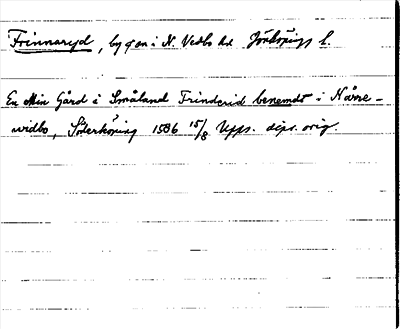 Frinnaryd, by o. sn i N. Vedbo hd Jönköpings l.
En Min Gård i Småland Frinderid benemdt i Norre-
widbo, Söderköping 1586 15/8 Upps. dipl. orig.